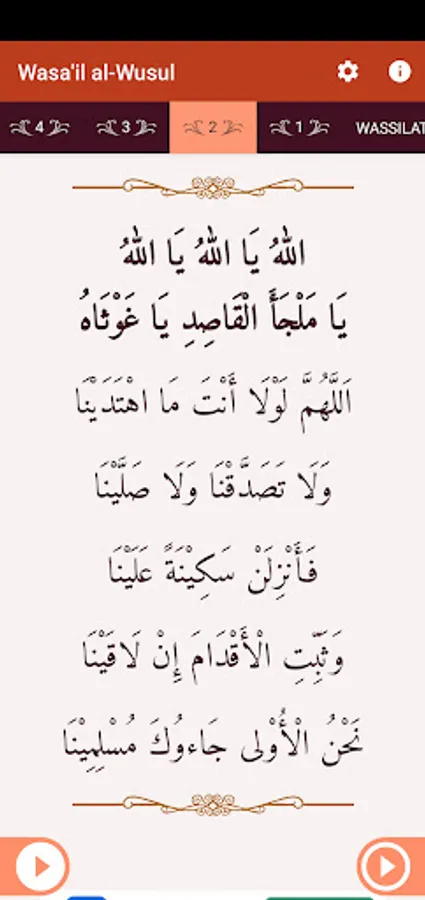 Wasa'il al-Wusul
4 3 2 1 WASSILAT
اللهُ يَا اللهُ يَا اللهُ
يَا مَلْجَأَ الْقَاصِدِ يَا غَوْثَاهُ
اَللَّهُمَّ لَوْلَا أَنْتَ مَا اهْتَدَيْنَا
وَلَا تَصَدَّقْنَا وَلَا صَلَّيْنَا
فَأَنْزِلَنْ سَكِيْنَةً عَلَيْنَا
وَثَبِّتِ الْأَقْدَامَ إِنْ لَاقَيْنَا
نَحْنُ الْأُوْلى جَاءوُكَ مُسْلِمِيْنَا